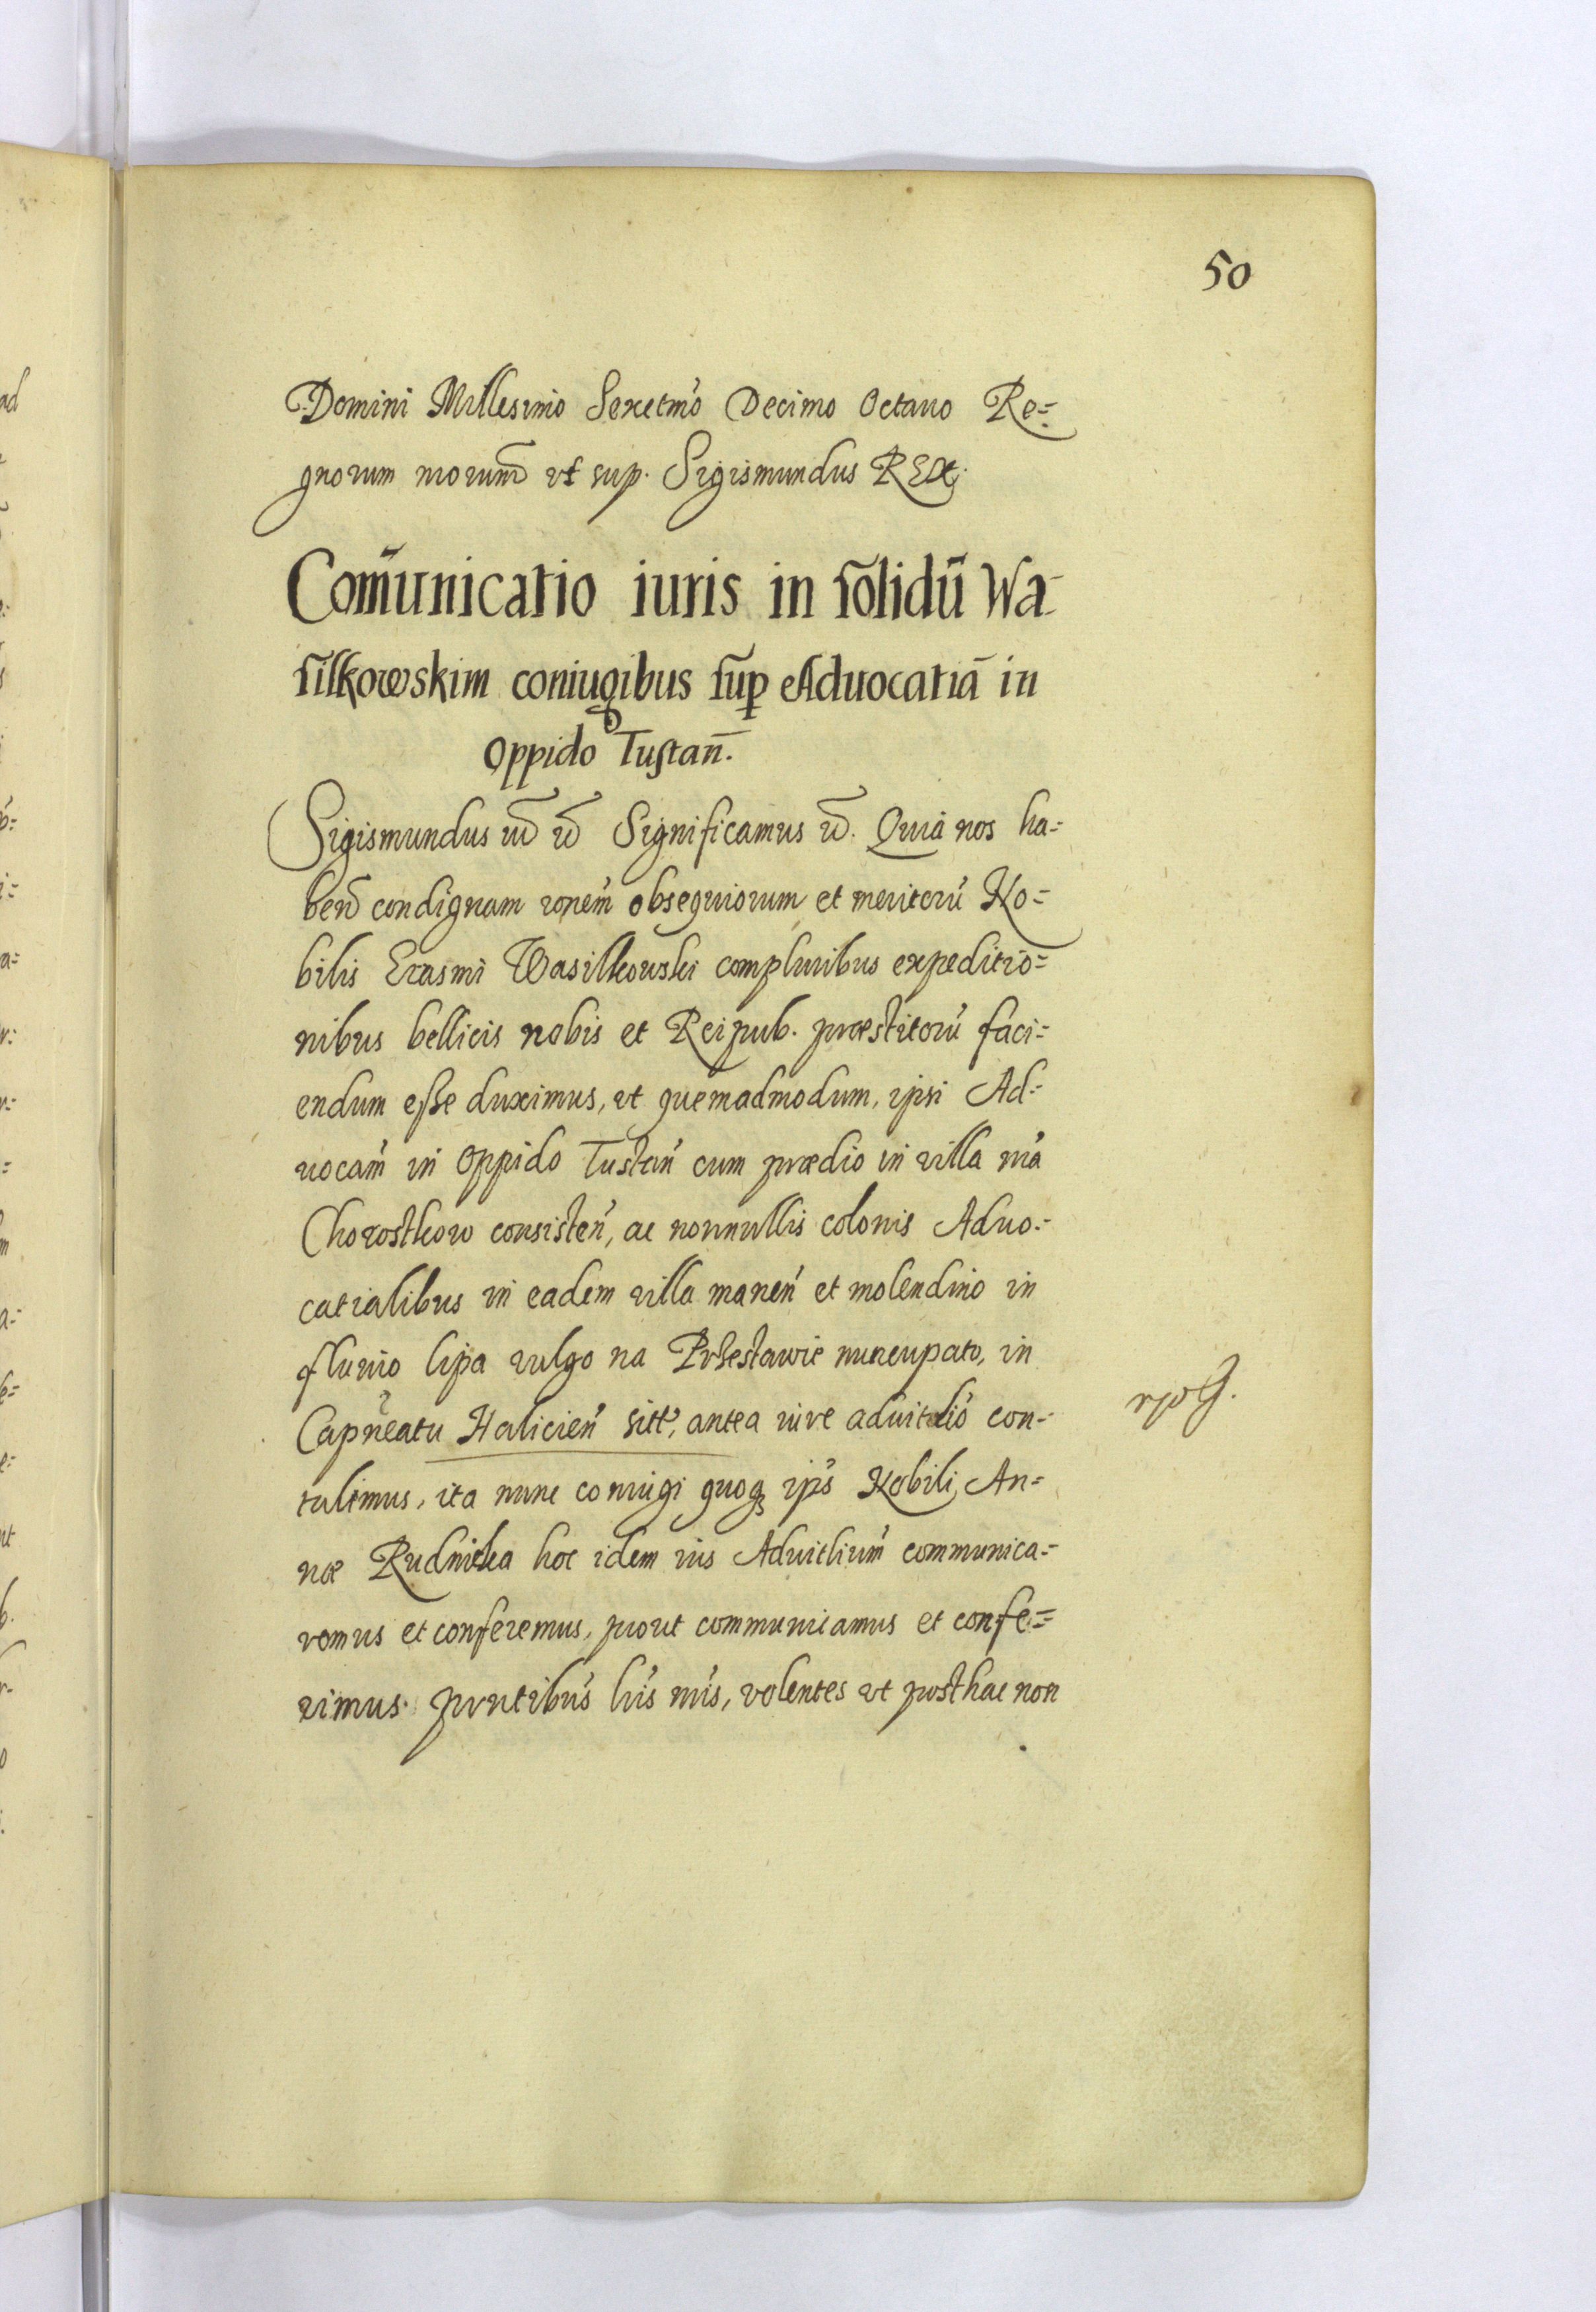 50
Domini Millesimo Sexctmo Decimo Octauo Re=
gnorum nrorum vt sup. Sigismundus REX.
Com̄unicatio iuris in solidū Wa-
silkowskim coniugibus sup Aduocatiā in
Oppido Tustan̄.
Sigismundus Significamus Quia nos ha=
ben condignam ronem obsequiorum et meritorū No=
bilis Erasmi Wasilkowski compluribus expeditio=
nibus bellicis nobis et Reipub. præstitorū faci=
endum esse duximus, vt quemadmodum, ipsi Ad=
uocam in Oppido Tustan cum prædio in villa nra
Chorostkow consisten, ac nonnullis colonis Aduo=
catialibus in eadem villa manen et molendino in
fluuio Lipa vulgo na Przestawie nuncupato, in
Capneatu Halicien sitt, antea iure aduitalio con=
tulimus, ita nunc coniugi quoq ips Nobili An=
næ Rudnicka hoc idem ius Aduitlium communica=
remus et conferemus, prout communicamus et confe=
rimus. pnrtibus lris nris, volentes vt posthac non